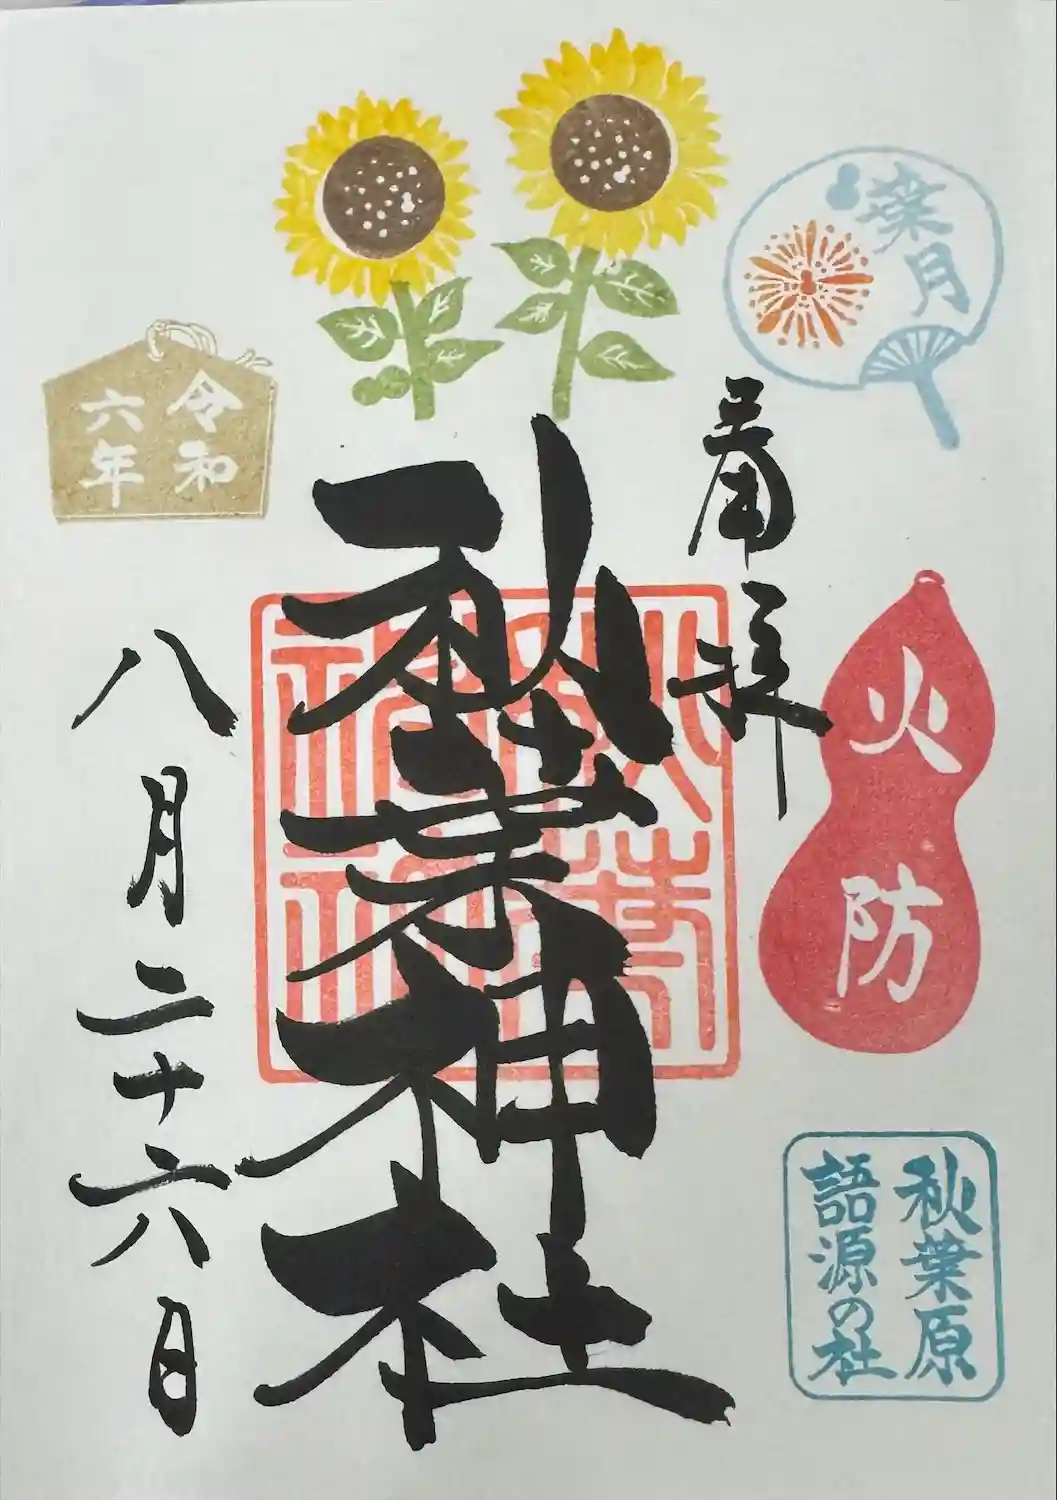 葉月
奉拝
火防
秋葉原
語源の社
秋葉神社
秋葉
神社
令和
六年
八月二十六日